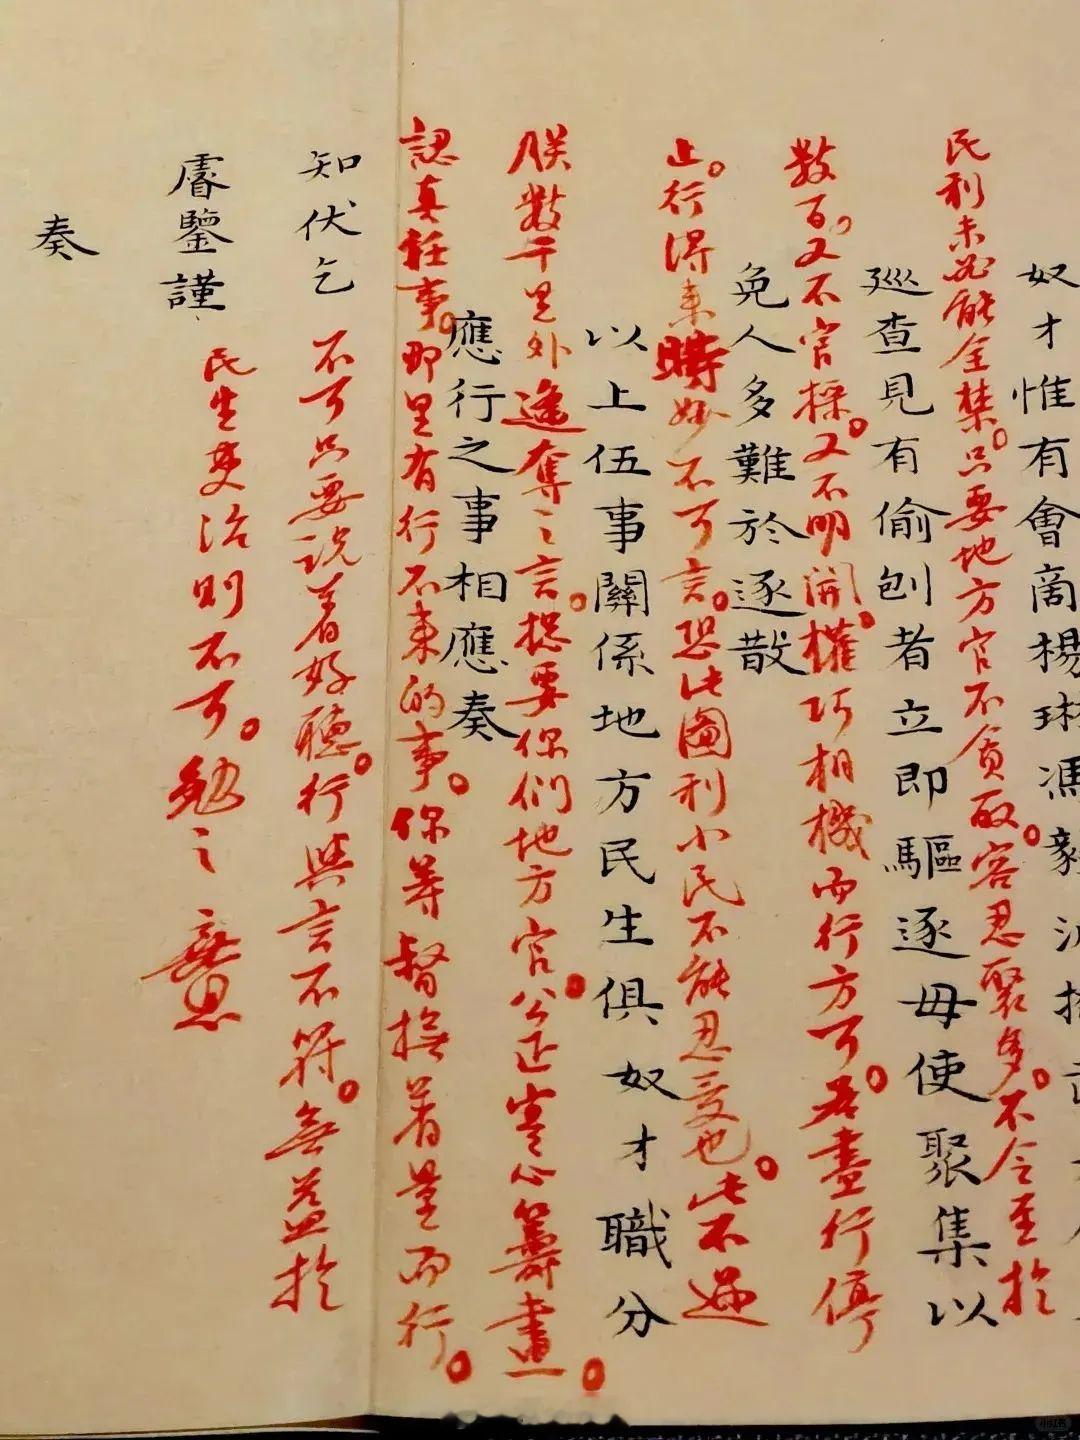 奴才惟有會商楊琳馮毅
民利未必能全禁。只要地方官不貪取。容忍聚多。不令至於
巡查見有偷刨者立即驅逐毋使聚集以
數百。又不官採。又不明開。權巧相機而行方可。若盡行停
免人多難於逐散
止。行得來時妙不可言。恐此圖利小民不能忍受也。此不過
以上伍事關係地方民生俱奴才職分
朕數千里外遙奪之言。總要你們地方官。公正寒心籌畫。
應行之事相應奏
認真任事。那里有行不來的事。你等督撫著量而行。
知伏乞
不可只要說著好聽。行與言不符。無益於
睿鑒謹
民生吏治則不可。勉之慎思
奏